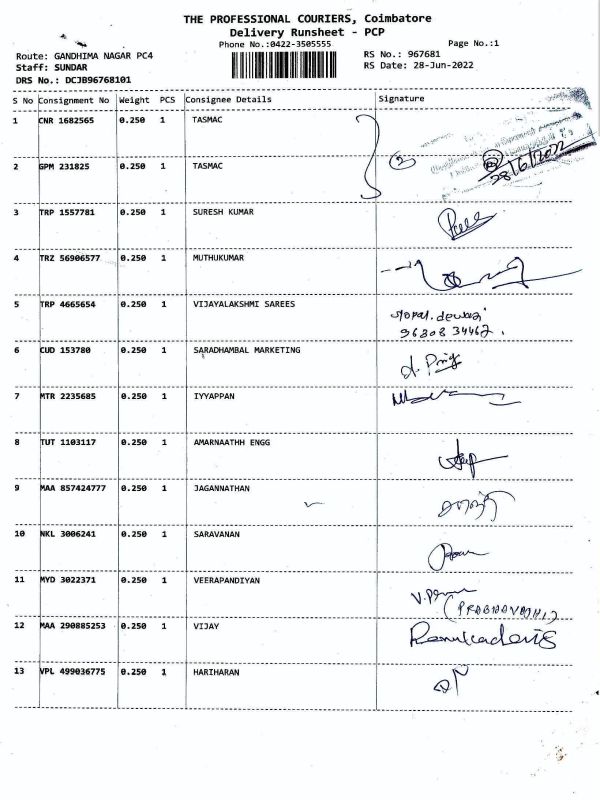 THE PROFESSIONAL COURIERS, Coimbatore
Delivery Runsheet - PCP
Phone No.:0422-3505555
Page No.:1
Route: GANDHIMA NAGAR PC4
RS No.: 967681
Staff: SUNDAR
RS Date: 28-Jun-2022
DRS No.: DCJB96768101
S No Consignment No Weight PCS Consignee Details Signature
1 CNR 1682565 0.250 1 TASMAC
2 GPM 231825 0.250 1 TASMAC
2
28/6/2022
3 TRP 1557781 0.250 1 SURESH KUMAR
4 TRZ 56906577 0.250 1 MUTHUKUMAR
5 TRP 4665654 0.250 1 VIJAYALAKSHMI SAREES
gopal.dewasi
96808 34462.
6 CUD 153780 0.250 1 SARADHAMBAL MARKETING
7 MTR 2235685 0.250 1 IYYAPPAN
8 TUT 1103117 0.250 1 AMARNAATHH ENGG
9 MAA 857424777 0.250 1 JAGANNATHAN
10 NKL 3006241 0.250 1 SARAVANAN
11 MYD 3022371 0.250 1 VEERAPANDIYAN
(PRABHAVATHI)
12 MAA 290885253 0.250 1 VIJAY
Renukadevi
13 VPL 499036775 0.250 1 HARIHARAN